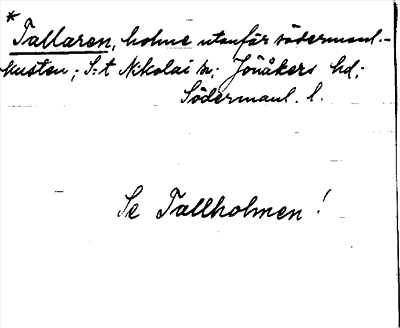 *
Tallaren, holme utanför södermanl.-
kusten; S:t Nikolai sn; Jönåkers hd;
Södermanl. l.
Se Tallholmen!